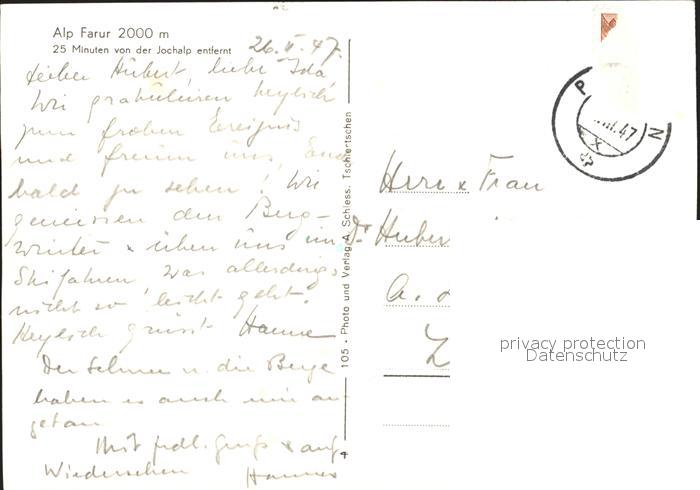 Alp Farur 2000 m
25 Minuten von der Jochalp entfernt
26.II.47.
Lieber Hubert, liebe Ida
Wir gratulieren herzlich
zum frohen Ereignis
und freuen uns, Euch
bald zu sehen! Wir
geniessen den Berg-
winter & üben uns im
Skifahren, was allerdings
nicht so leicht geht.
Herzlich grüsst Hanne
Der Schnee u. die Berge
haben es auch mir an
getan
Mit frdl. Gruß & auf
Wiedersehen Hannes
105 - Photo und Verlag A. Schiess, Tschiertschen
P
N
47
X
Herr & Frau
Dr Huber
privacy protection
Datenschutz